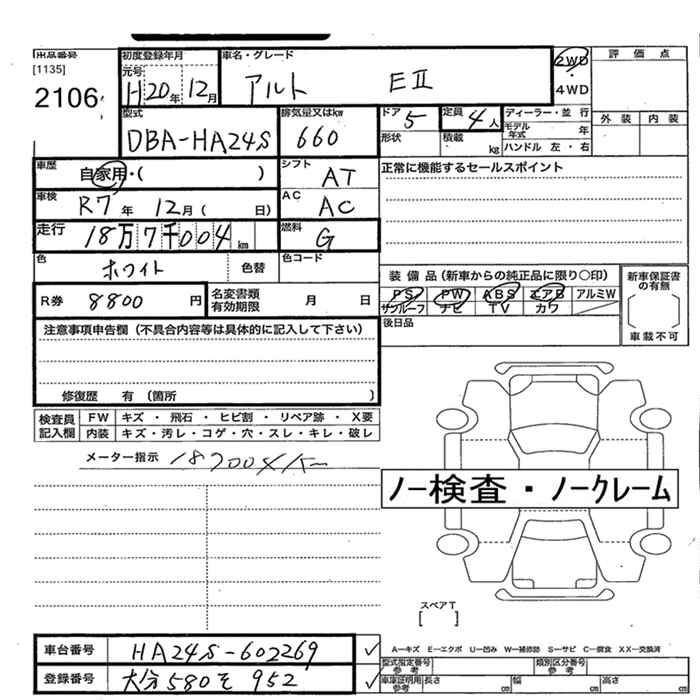 出品番号
[1135]
2106
初度登録年月
元号
H20年12月
車名・グレード
アルト EⅡ
2WD
・
4WD
評価点
外装 内装
型式
DBA-HA24S
排気量又はkw
660
ドア
5
形状
定員
4人
積載
kg
ディーラー・並行
モデル年式 年
ハンドル 左・右
車歴
自家用・( )
シフト
AT
正常に機能するセールスポイント
車検
R7年 12月( 日)
AC
AC
走行
18万7千004km
燃料
G
色
ホワイト
色替
色コード
R券 8800円
名変書類
有効期限
月 日
装備品(新車からの純正品に限り○印)
PS PW ABS エアB アルミW
サンルーフ ナビ TV カワ
新車保証書
の有無
[ ]
車載不可
後日品
注意事項申告欄(不具合内容等は具体的に記入して下さい)
修復歴 有(箇所 )
検査員
記入欄
FW キズ・飛石・ヒビ割・リペア跡・X要
内装 キズ・汚レ・コゲ・穴・スレ・キレ・破レ
メーター指示
ノー検査・ノークレーム
スペアT
[ ]
車台番号 HA24S-602269 ✓
登録番号 大分580そ952 ✓
A-キズ E-エクボ U-凹み W-補修跡 S-サビ C-腐食 XX-交換済
型式指定番号
参考
類別区分番号
参考
車庫証明用
参考
長さ cm 幅 cm 高さ cm